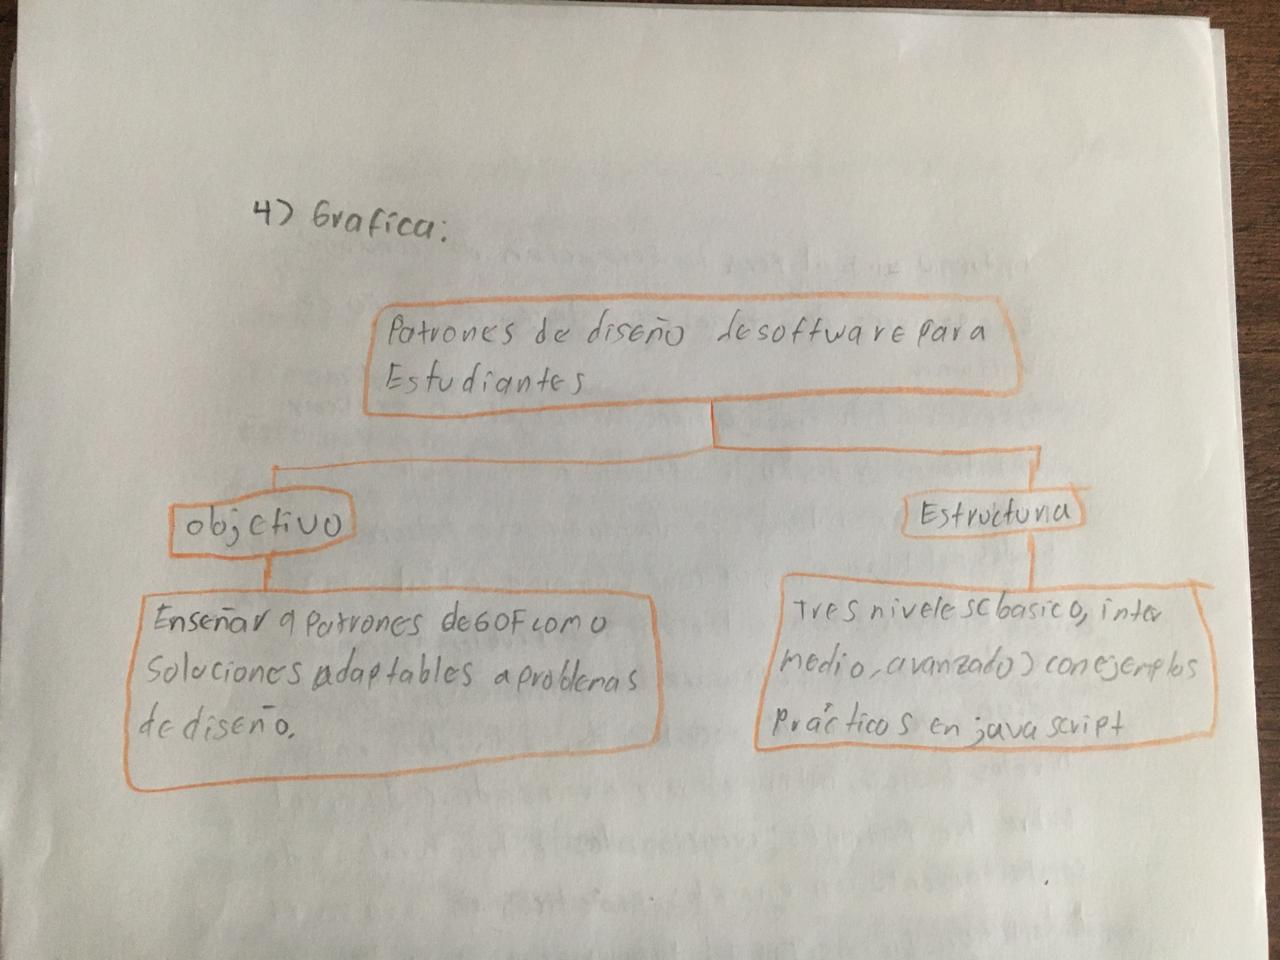 4) Grafica:
Patrones de diseño de software para
Estudiantes
objetivo
Estructura
Enseñar 9 Patrones de GOF como
Soluciones adaptables a problemas
de diseño.
Tres niveles (basico, inter
medio, avanzado) con ejemplos
Prácticos en java script